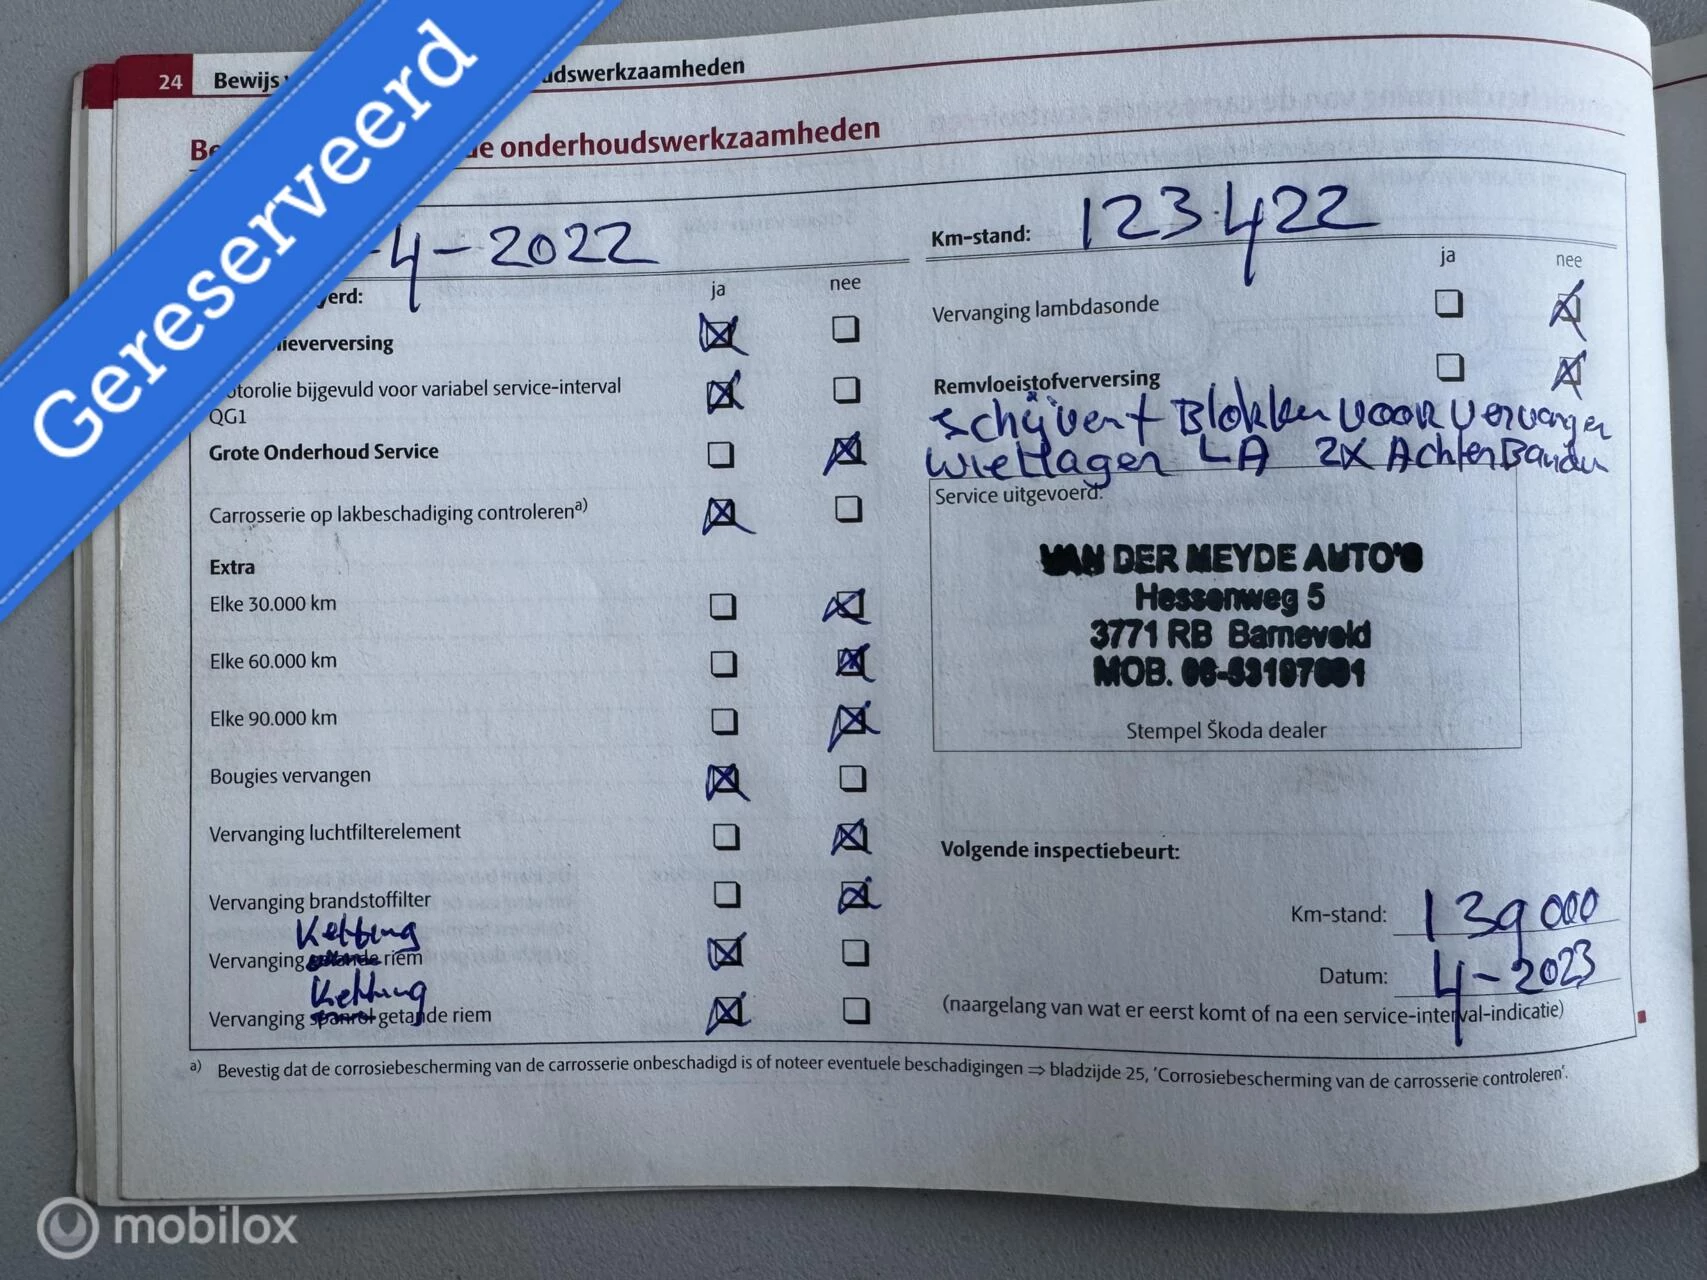 Gereserveerd
24 Bewijs udswerkzaamheden
Be de onderhoudswerkzaamheden
-4-2022
erd:
ja nee
ieverversing
otorolie bijgevuld voor variabel service-interval
QG1
Grote Onderhoud Service
Carrosserie op lakbeschadiging controleren a)
Extra
Elke 30.000 km
Elke 60.000 km
Elke 90.000 km
Bougies vervangen
Vervanging luchtfilterelement
Vervanging brandstoffilter
Ketting
Vervanging getande riem
Ketting
Vervanging spanrol getande riem
Km-stand: 123.422
ja nee
Vervanging lambdasonde
Remvloeistofverversing
Schijven + Blokken voor vervangen
Wiellager LA 2x Achter Banden
Service uitgevoerd:
VAN DER MEYDE AUTO'S
Hessenweg 5
3771 RB Barneveld
MOB.
Stempel Škoda dealer
Volgende inspectiebeurt:
Km-stand: 139000
Datum: 4-2023
(naargelang van wat er eerst komt of na een service-interval-indicatie)
a) Bevestig dat de corrosiebescherming van de carrosserie onbeschadigd is of noteer eventuele beschadigingen ⇒ bladzijde 25, 'Corrosiebescherming van de carrosserie controleren'.
mobilox